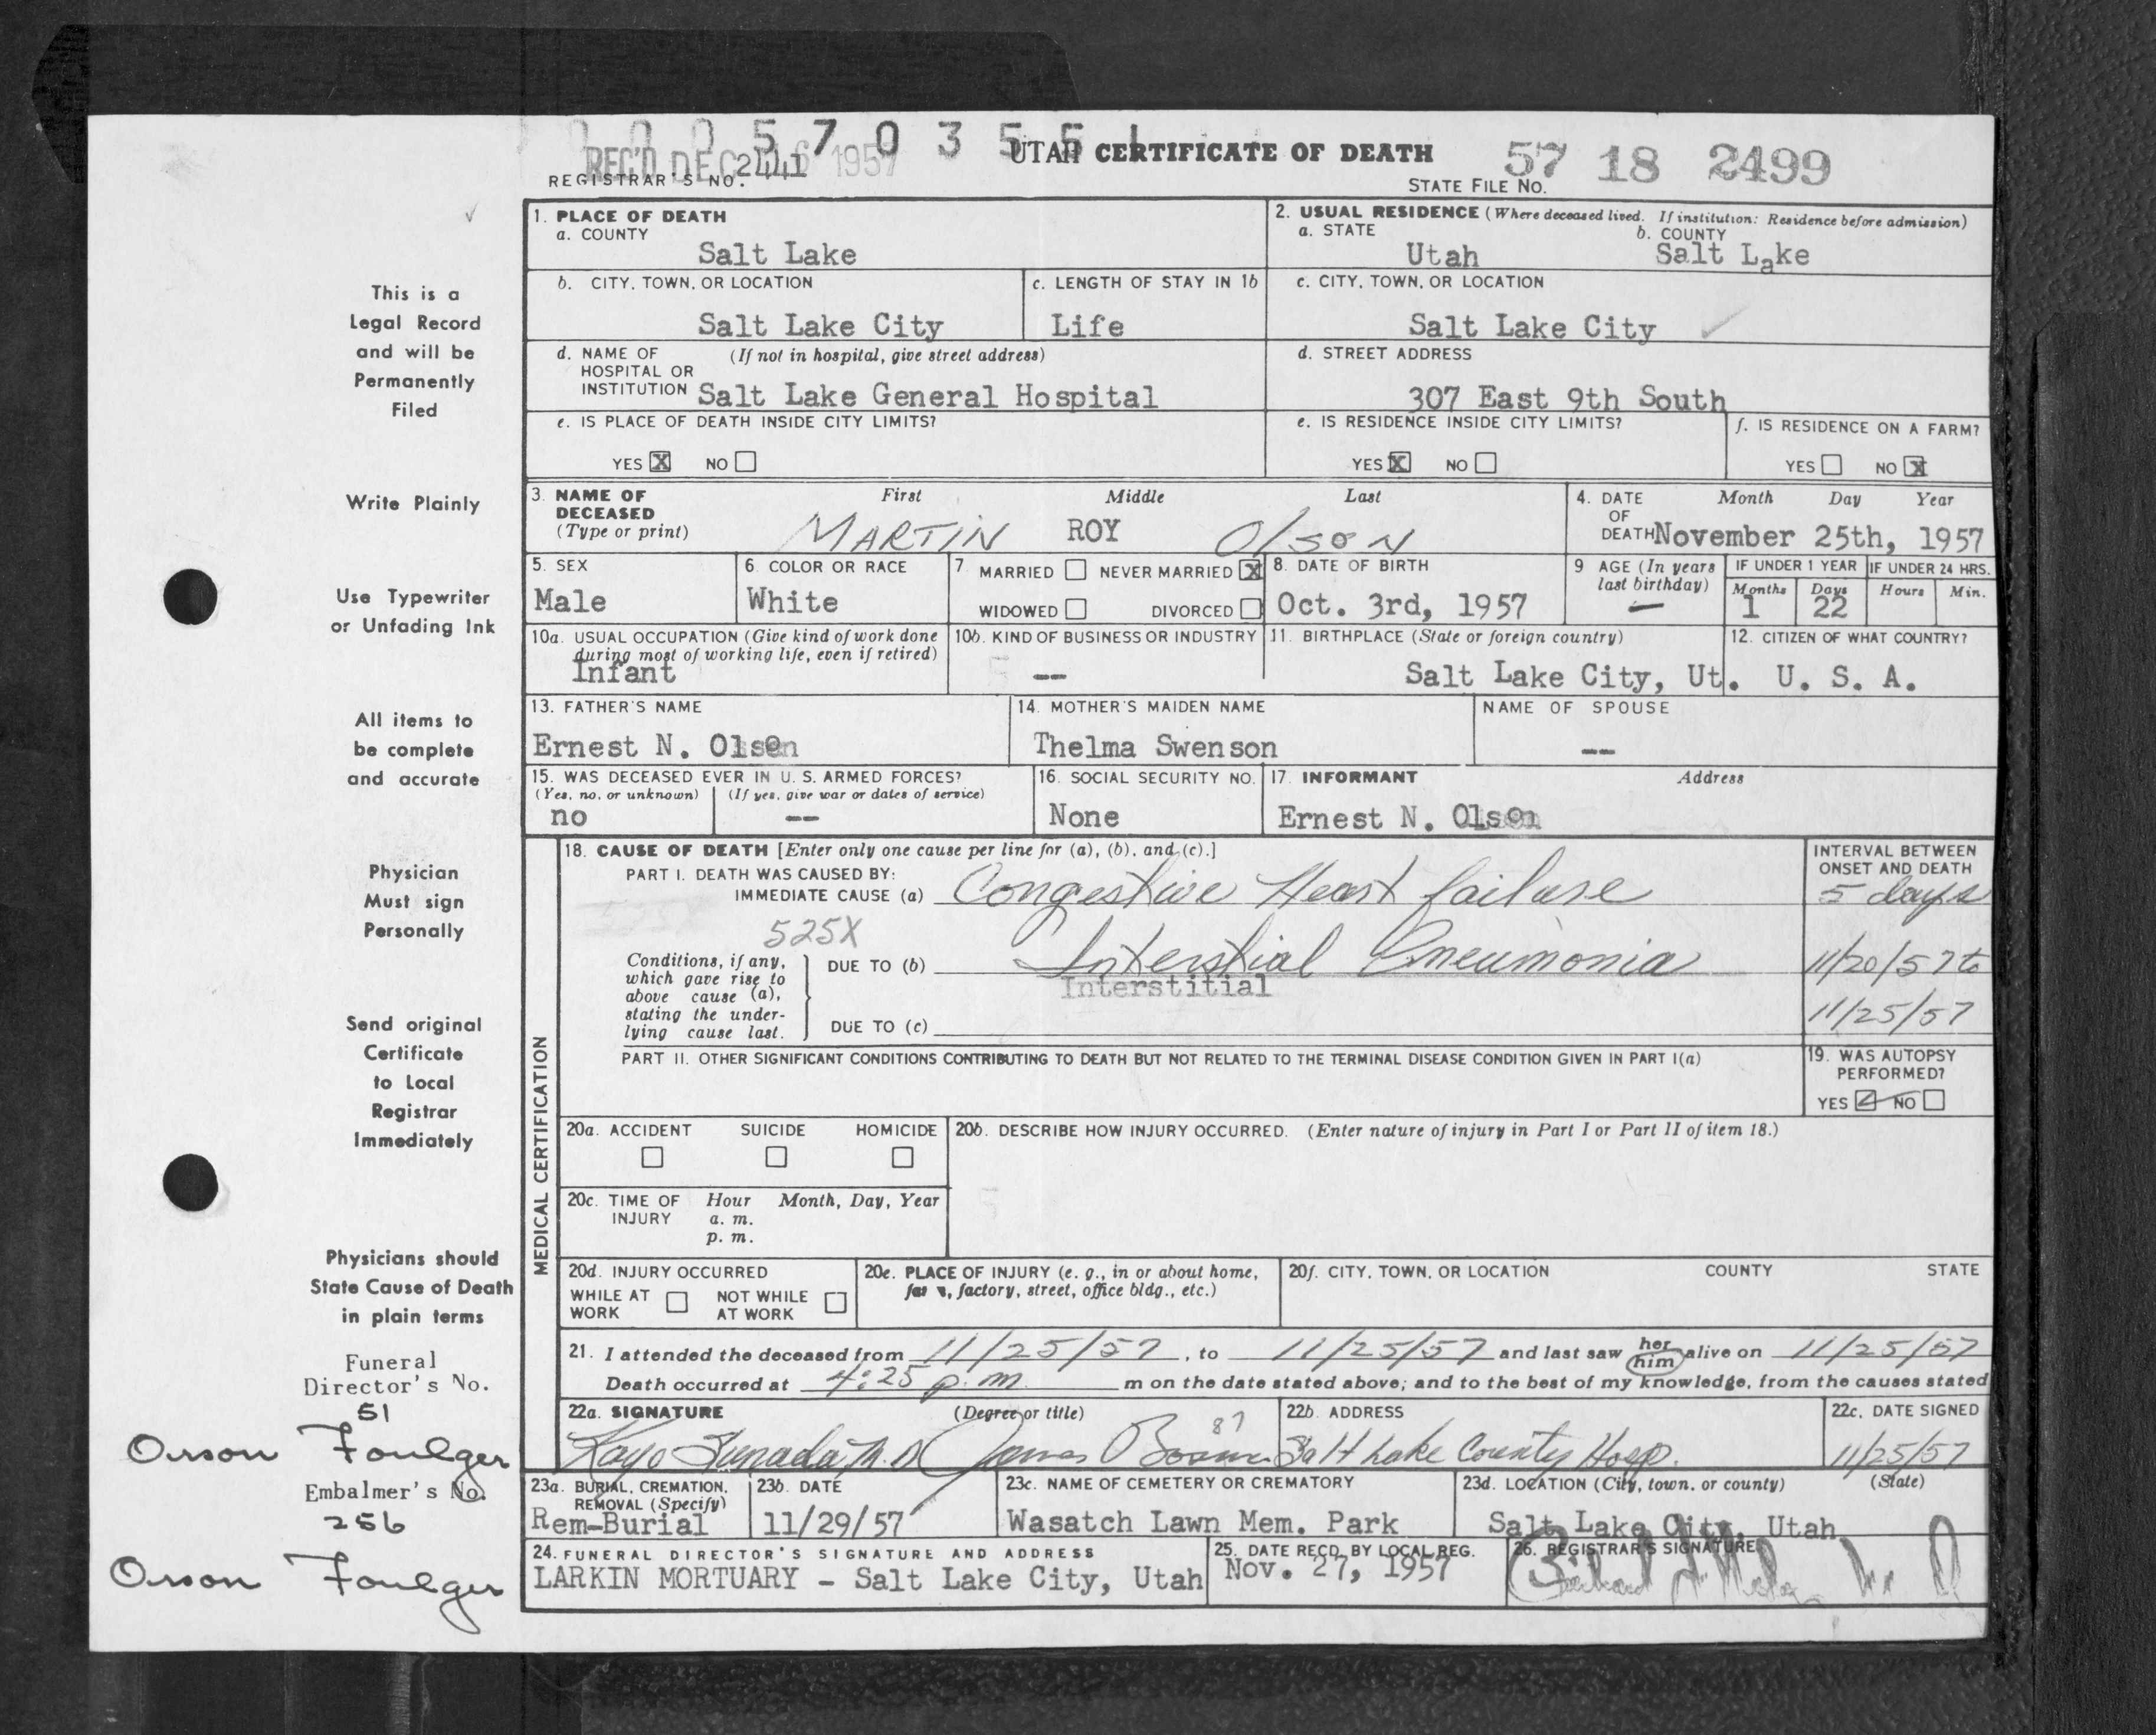 0 0 0 5 7 0 3 5 5 1
REC'D DEC 16 1957
UTAH CERTIFICATE OF DEATH
REGISTRAR'S NO. 2441
STATE FILE NO. 57 18 2499
This is a
Legal Record
and will be
Permanently
Filed
Write Plainly
Use Typewriter
or Unfading Ink
All items to
be complete
and accurate
Physician
Must sign
Personally
Send original
Certificate
to Local
Registrar
Immediately
Physicians should
State Cause of Death
in plain terms
Funeral
Director's No.
51
Orson Foulger
Embalmer's No.
256
Orson Foulger
1. PLACE OF DEATH
a. COUNTY
Salt Lake
2. USUAL RESIDENCE (Where deceased lived. If institution: Residence before admission)
a. STATE b. COUNTY
Utah Salt Lake
b. CITY, TOWN, OR LOCATION
Salt Lake City
c. LENGTH OF STAY IN 1b
Life
c. CITY, TOWN, OR LOCATION
Salt Lake City
d. NAME OF (If not in hospital, give street address)
HOSPITAL OR
INSTITUTION Salt Lake General Hospital
d. STREET ADDRESS
307 East 9th South
e. IS PLACE OF DEATH INSIDE CITY LIMITS?
YES X NO
e. IS RESIDENCE INSIDE CITY LIMITS?
YES X NO
f. IS RESIDENCE ON A FARM?
YES NO X
3. NAME OF First Middle Last
DECEASED
(Type or print) MARTIN ROY Olson
4. DATE Month Day Year
OF
DEATH November 25th, 1957
5. SEX
Male
6. COLOR OR RACE
White
7. MARRIED NEVER MARRIED X
WIDOWED DIVORCED
8. DATE OF BIRTH
Oct. 3rd, 1957
9 AGE (In years
last birthday)
—
IF UNDER 1 YEAR
Months Days
1 22
IF UNDER 24 HRS.
Hours Min.
10a. USUAL OCCUPATION (Give kind of work done
during most of working life, even if retired)
Infant
10b. KIND OF BUSINESS OR INDUSTRY
--
11. BIRTHPLACE (State or foreign country)
Salt Lake City, Ut.
12. CITIZEN OF WHAT COUNTRY?
U. S. A.
13. FATHER'S NAME
Ernest N. Olson
14. MOTHER'S MAIDEN NAME
Thelma Swenson
NAME OF SPOUSE
--
15. WAS DECEASED EVER IN U. S. ARMED FORCES?
(Yes, no, or unknown) (If yes, give war or dates of service)
no --
16. SOCIAL SECURITY NO.
None
17. INFORMANT Address
Ernest N. Olson
MEDICAL CERTIFICATION
18. CAUSE OF DEATH [Enter only one cause per line for (a), (b), and (c).]
PART I. DEATH WAS CAUSED BY:
IMMEDIATE CAUSE (a) Congestive Heart failure
525X
Conditions, if any,
which gave rise to
above cause (a),
stating the under-
lying cause last.
DUE TO (b) Interstial Pneumonia
Interstitial
DUE TO (c)
INTERVAL BETWEEN
ONSET AND DEATH
5 days
11/20/57 to
11/25/57
PART II. OTHER SIGNIFICANT CONDITIONS CONTRIBUTING TO DEATH BUT NOT RELATED TO THE TERMINAL DISEASE CONDITION GIVEN IN PART I(a)
19. WAS AUTOPSY
PERFORMED?
YES NO
20a. ACCIDENT SUICIDE HOMICIDE
20b. DESCRIBE HOW INJURY OCCURRED. (Enter nature of injury in Part I or Part II of item 18.)
20c. TIME OF Hour Month, Day, Year
INJURY a. m.
p. m.
20d. INJURY OCCURRED
WHILE AT NOT WHILE
WORK AT WORK
20e. PLACE OF INJURY (e. g., in or about home,
factory, street, office bldg., etc.)
20f. CITY, TOWN, OR LOCATION COUNTY STATE
21. I attended the deceased from 11/25/57, to 11/25/57 and last saw her him alive on 11/25/57
Death occurred at 4:25 p.m. m on the date stated above; and to the best of my knowledge, from the causes stated
22a. SIGNATURE (Degree or title)
Kayo Sunada M.D. James 87
22b. ADDRESS
Salt Lake County Hosp.
22c. DATE SIGNED
11/25/57
23a. BURIAL, CREMATION,
REMOVAL (Specify)
Rem-Burial
23b. DATE
11/29/57
23c. NAME OF CEMETERY OR CREMATORY
Wasatch Lawn Mem. Park
23d. LOCATION (City, town, or county) (State)
Salt Lake City, Utah
24. FUNERAL DIRECTOR'S SIGNATURE AND ADDRESS
LARKIN MORTUARY - Salt Lake City, Utah
25. DATE RECD. BY LOCAL REG.
Nov. 27, 1957
26. REGISTRAR'S SIGNATURE